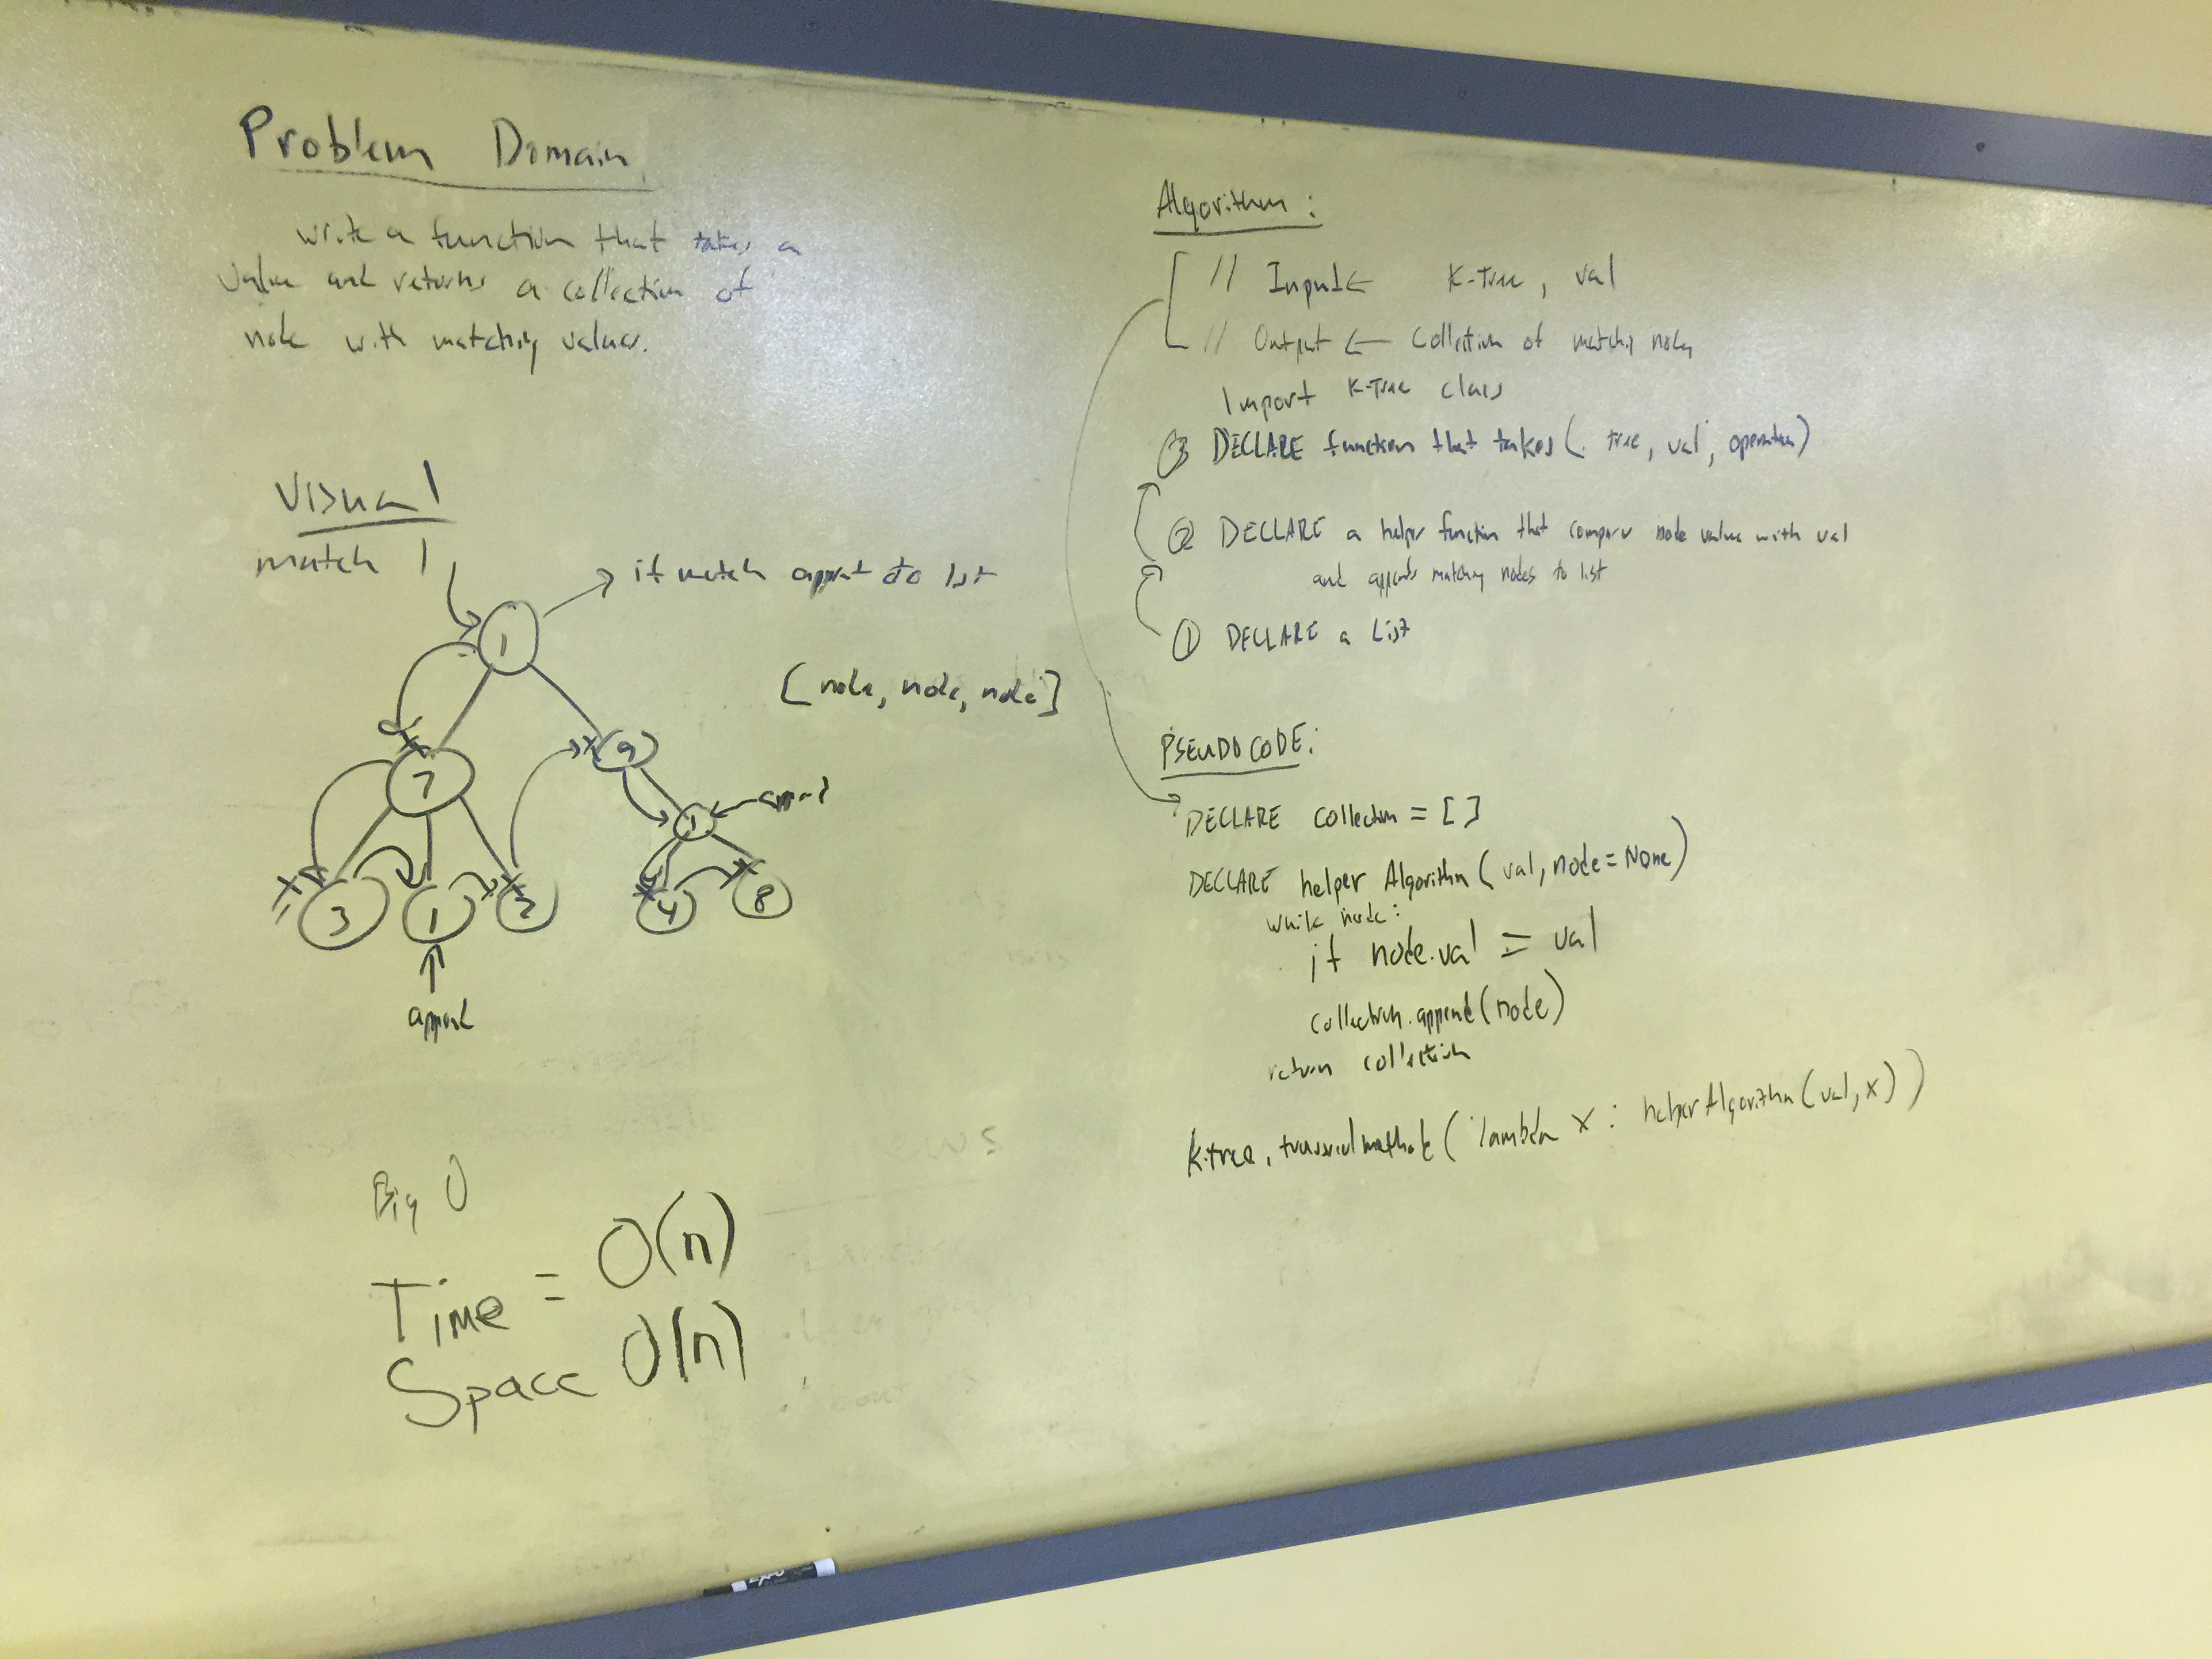 Problem Domain
write a function that takes a
value and returns a collection of
node with matching values.
Visual
match 1
if match append to list
1
[node, node, node]
7
9
1
append
3
1
2
4
8
append
Big O
Time = O(n)
Space O(n)
Algorithm:
// Input ← K-Tree, val
// Output ← Collection of matching nodes
Import K-Tree class
③ DECLARE function that takes (tree, val, operation)
② DECLARE a helper function that compare node value with val
and appends matching nodes to list
① DECLARE a List
PSEUDO CODE:
DECLARE collection = []
DECLARE helper Algorithm (val, node = None)
while node:
if node.val = val
collection.append(node)
return collection
k-tree. (lambda x: helperAlgorithm(val, x))
EXPO